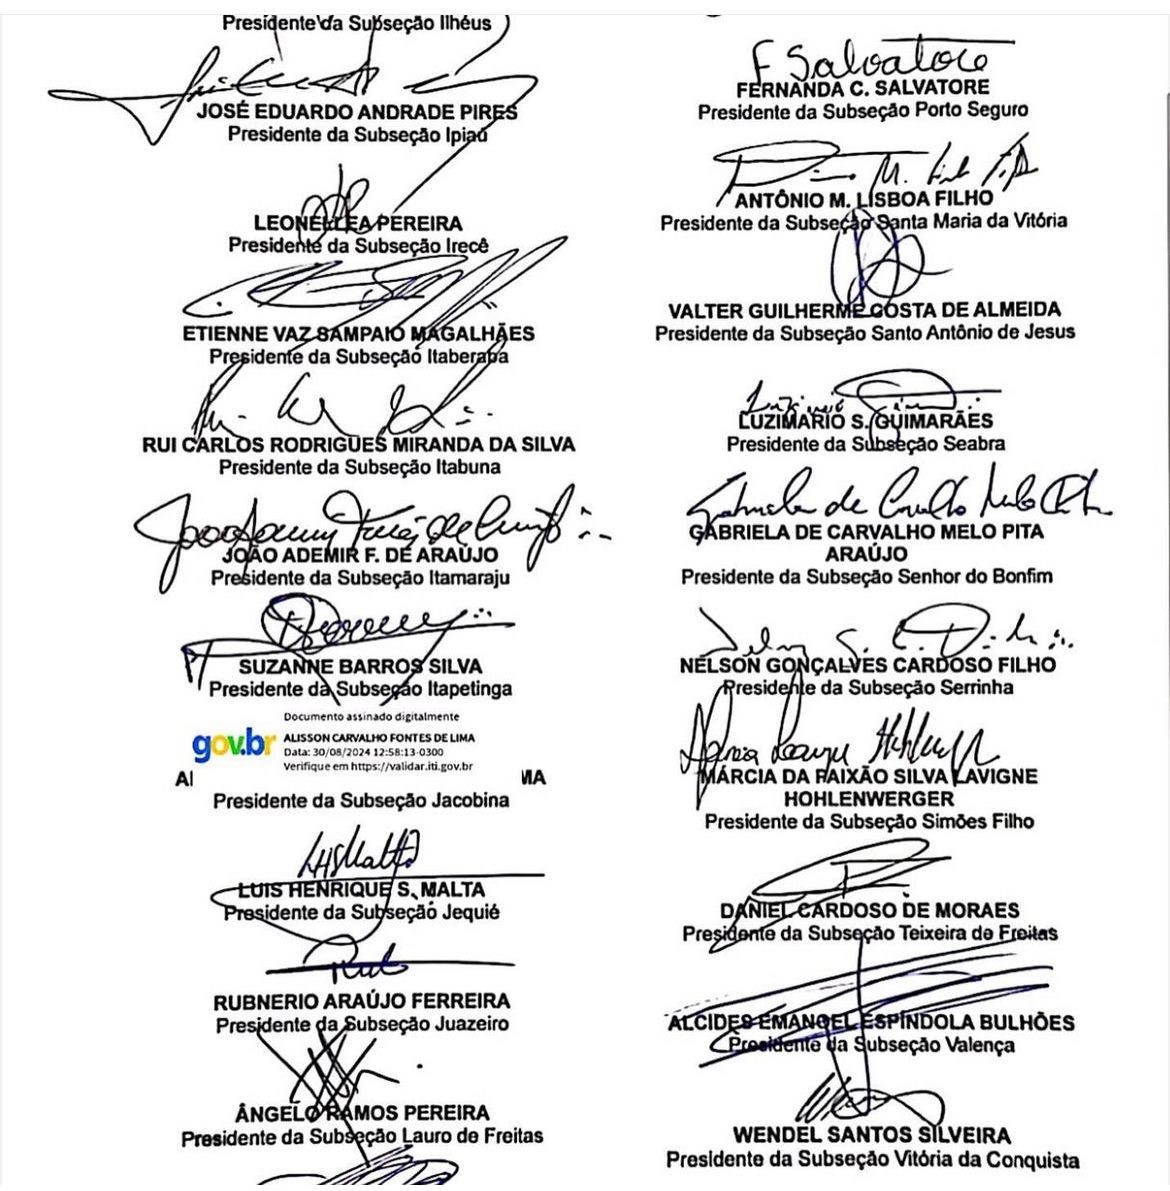 Presidente da Subseção Ilhéus
JOSÉ EDUARDO ANDRADE PIRES
Presidente da Subseção Ipiaú
LEONELLEA PEREIRA
Presidente da Subseção Irecê
ETIENNE VAZ SAMPAIO MAGALHÃES
Presidente da Subseção Itaberaba
RUI CARLOS RODRIGUES MIRANDA DA SILVA
Presidente da Subseção Itabuna
JOÃO ADEMIR F. DE ARAÚJO
Presidente da Subseção Itamaraju
SUZANNE BARROS SILVA
Presidente da Subseção Itapetinga
Documento assinado digitalmente
gov.br
ALISSON CARVALHO FONTES DE LIMA
Data: 30/08/2024 12:58:13-0300
Verifique em https://validar.iti.gov.br
Presidente da Subseção Jacobina
LUIS HENRIQUE S. MALTA
Presidente da Subseção Jequié
RUBNERIO ARAÚJO FERREIRA
Presidente da Subseção Juazeiro
ÂNGELO RAMOS PEREIRA
Presidente da Subseção Lauro de Freitas
F Salvatore
FERNANDA C. SALVATORE
Presidente da Subseção Porto Seguro
ANTÔNIO M. LISBOA FILHO
Presidente da Subseção Santa Maria da Vitória
VALTER GUILHERME COSTA DE ALMEIDA
Presidente da Subseção Santo Antônio de Jesus
LUZIMARIO S. GUIMARÃES
Presidente da Subseção Seabra
GABRIELA DE CARVALHO MELO PITA
ARAÚJO
Presidente da Subseção Senhor do Bonfim
NELSON GONÇALVES CARDOSO FILHO
Presidente da Subseção Serrinha
MÁRCIA DA PAIXÃO SILVA LAVIGNE
HOHLENWERGER
Presidente da Subseção Simões Filho
DANIEL CARDOSO DE MORAES
Presidente da Subseção Teixeira de Freitas
ALCIDES EMANOEL ESPÍNDOLA BULHÕES
Presidente da Subseção Valença
WENDEL SANTOS SILVEIRA
Presidente da Subseção Vitória da Conquista